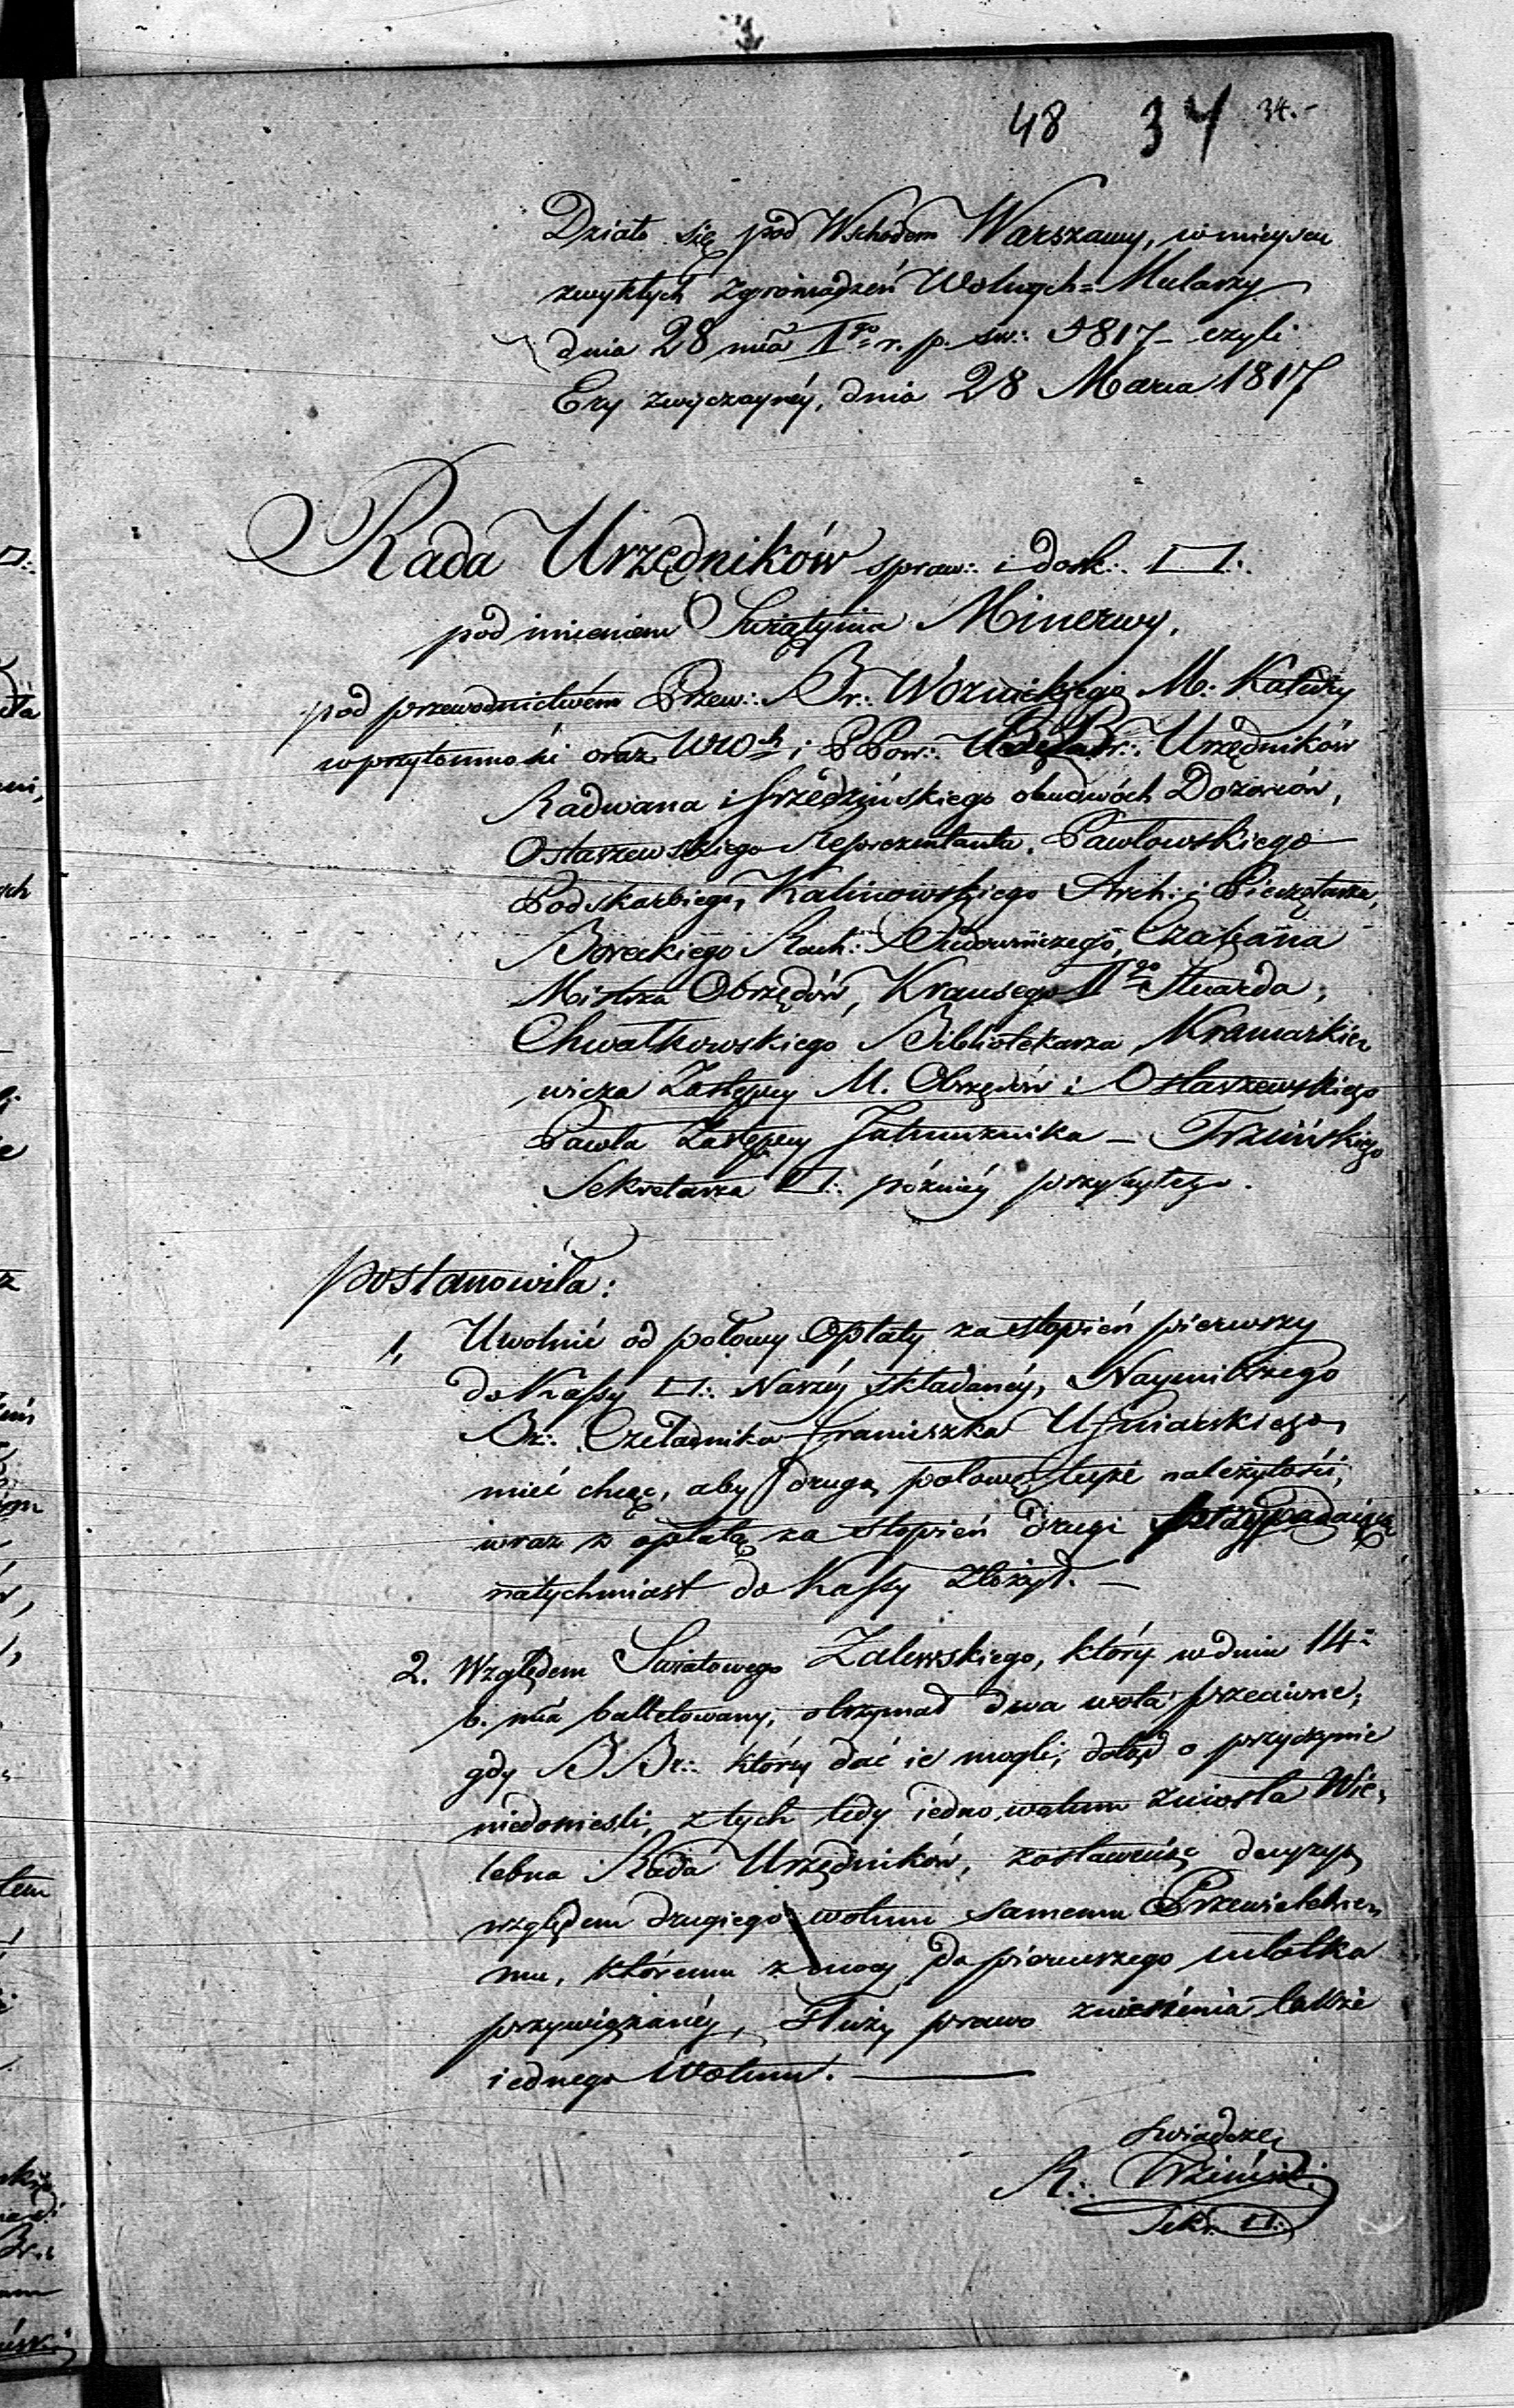 48 34 34.-
Działo się pod Wschodem Warszawy, w mieyscu
zwykłych Zgromadzeń Wolnych=Mularzy
dnia 28 mca I go r. p. sw:. 5817 - czyli
Ery zwyczayney, dnia 28 Marca 1817
Rada Urzędników spraw:. i dosk:. □:.
pod imieniem Swiątynia Minerwy,
pod przewodnictwem Przew:. Br:. Woznickiego M. Katedry
w przytomności oraz WW i PPow:. Br:. Urzędników
Radwana i Grzędzińskiego obudwóch Dozorców,
Ostaszewskiego Reprezentanta, Pawłowskiego
Podskarbiego, Kalinowskiego Arch: i Pieczętarza,
Boreckiego Rach: Budowniczego, Czabana
Mistrza Obrzędów, Krausego II go Stuarda,
Chwałkowskiego Bibliotekarza, Kramarkie=
wicza Zastępcy M. Obrzędów i Ostaszewskiego
Pawła Zastępcy Jałmużnika - Trzcińskiego
Sekretarza □:. późniéy przybyłego.
postanowiła:
1, Uwolnić od połowy Opłaty za stopień pierwszy
do Kassy □:. Naszéy składanéy, Naymilszego
Br:. Czeladnika Franciszka Uzniarskiego,
mieć chcąc, aby drugą połowę teyże należytości,
wraz z opłatą za stopień drugi przypadaiącą
natychmiast do Kassy złożył. -
2. Względem Swiatowego Zalewskiego, który w dniu 14=
b. mca balletowany, otrzymał dwa wota przeciwne,
gdy BBr:. którzy dać ie mogli, dotąd o przyczynie
niedonieśli, z tych tedy iedno wotum zniosła Wie=
lebna Rada Urzędników, zostawuiąc decyzyą
względem drugiego wotum samemu Przewielebne=
mu, któremu z mocy do pierwszego młotka
przywiązanéy, służy prawo zniesienia także
iednego Wotum. -
Swiadczę
R:. Trzciński
Sekr. □:.